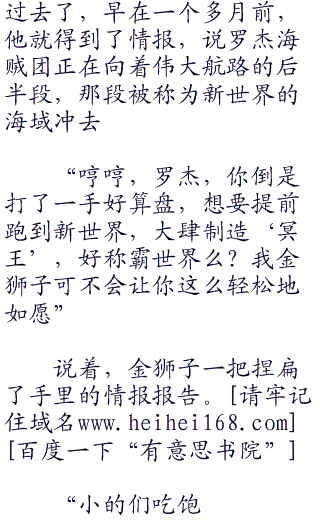 过去了，早在一个多月前，
他就得到了情报，说罗杰海
贼团正在向着伟大航路的后
半段，那段被称为新世界的
海域冲去
“哼哼，罗杰，你倒是
打了一手好算盘，想要提前
跑到新世界，大肆制造‘冥
王’，好称霸世界么？我金
狮子可不会让你这么轻松地
如愿”
说着，金狮子一把捏扁
了手里的情报报告。[请牢记
住域名www.heihei168.com]
[百度一下“有意思书院”]
“小的们吃饱